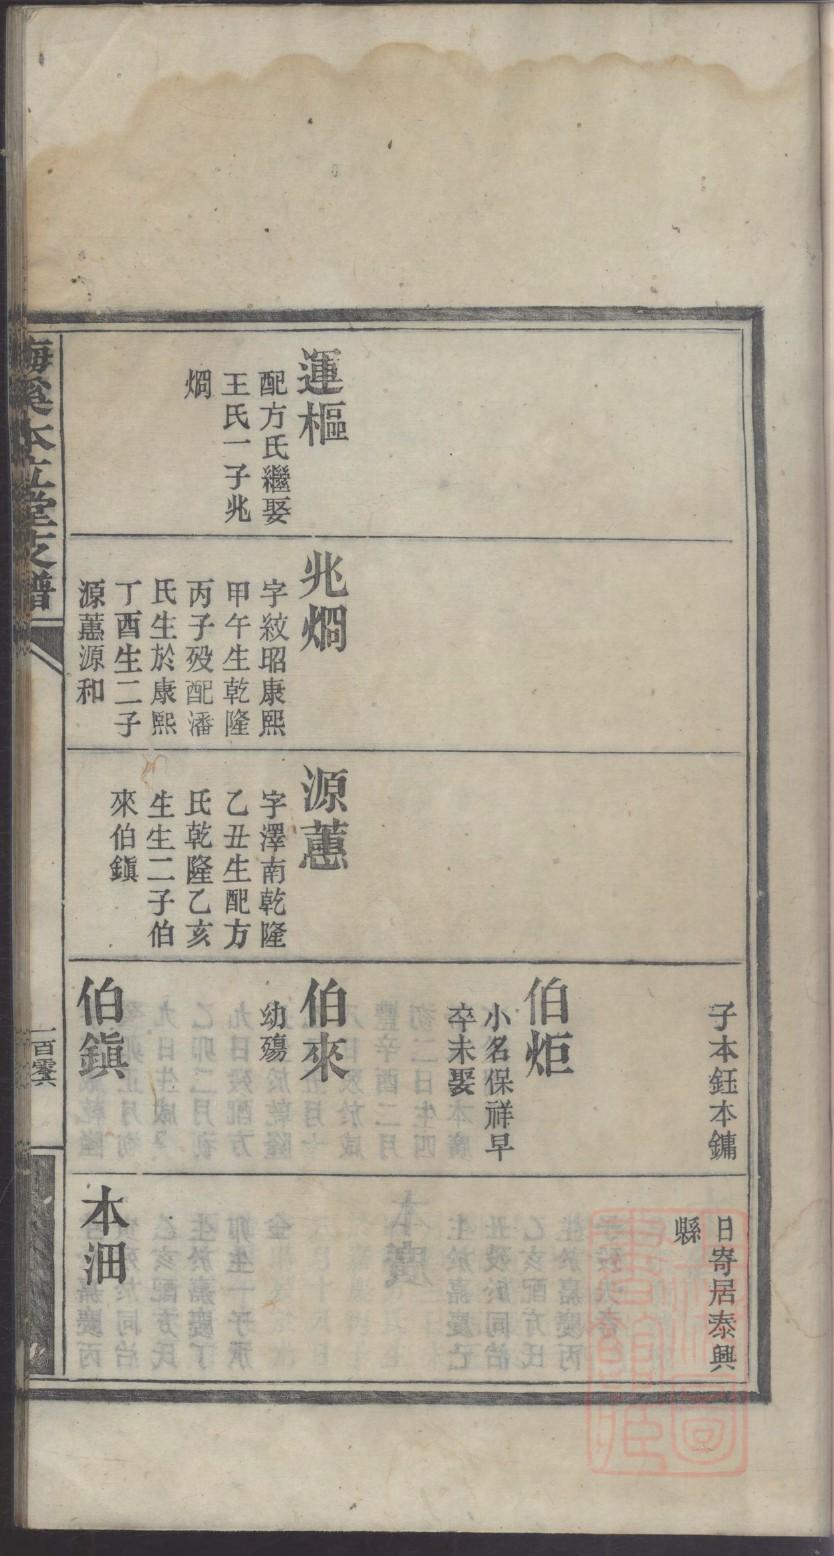 運樞
配方氏繼娶
王氏一子兆
烱
兆烱
字紋昭康熙
甲午生乾隆
丙子殁配潘
氏生於康熙
丁酉生二子
源蕙源和
源蕙
字澤南乾隆
乙丑生配方
氏乾隆乙亥
生生二子伯
來伯鎭
子本鈺本鏞
伯炬
小名保祥早
卒未娶
伯來
幼殤
伯鎭
日寄居泰興
縣
本沺
梅溪本立堂支譜
一百零六